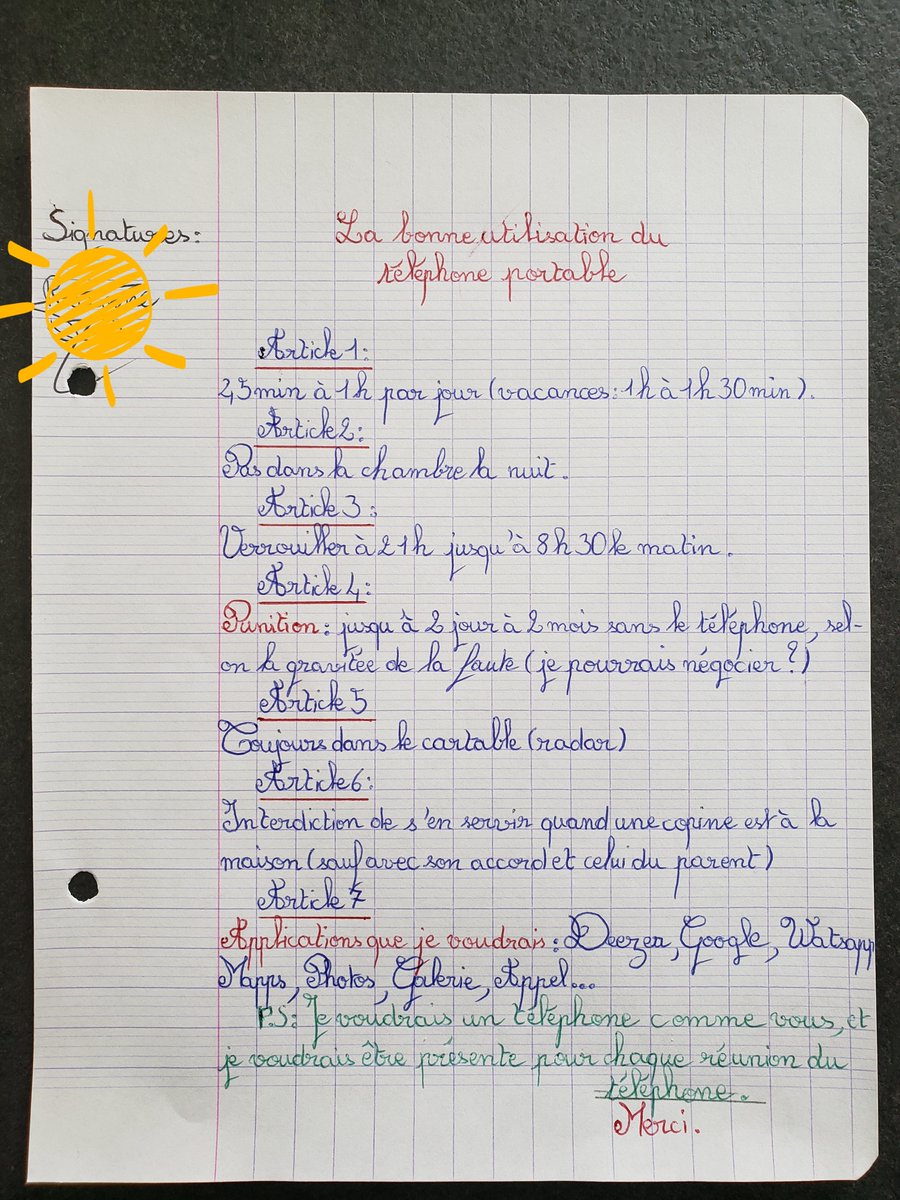 Signatures:
La bonne utilisation du
téléphone portable
Article 1:
2,5min à 1h par jour (vacances: 1h à 1h 30min).
Article 2:
Pas dans la chambre la nuit.
Article 3:
Verrouiller à 21h jusqu'à 8h30 le matin.
Article 4:
Punition: jusqu'à 2 jour à 2 mois sans le téléphone, sel-
on la gravitée de la faute (je pourrais négocier?)
Article 5
Toujours dans le cartable (radar)
Article 6:
Interdiction de s'en servir quand une copine est à la
maison (sauf avec son accord et celui du parent)
Article 7
Applications que je voudrais: Deezer, Google, Watsapp
Mapps, Photos, Galerie, Appel...
P.S: Je voudrais un téléphone comme vous, et
je voudrais être présente pour chaque réunion du
téléphone.
Merci.